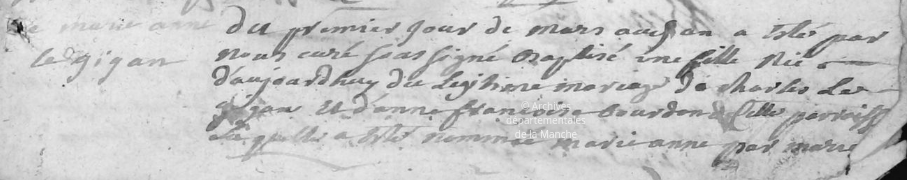 marie anne
le gigan
du premier jour de mars audit an a esté par
nous curé soussigné Baptisé une fille née
d'aujourdhuy du legitime mariage de charles Le
gigan et d'anne françoise Bourdon de cette parroiss
laquelle a esté nommée marie anne par marie
© Archives
départementales
de la Manche